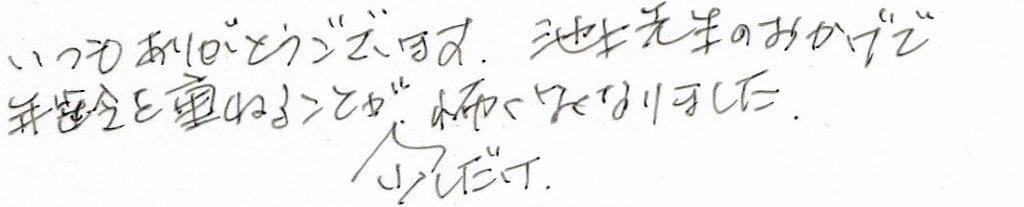 いつもありがとうございます. 池本先生のおかげで
年齢を重ねることが. 怖くなくなりました.
少しだけ.